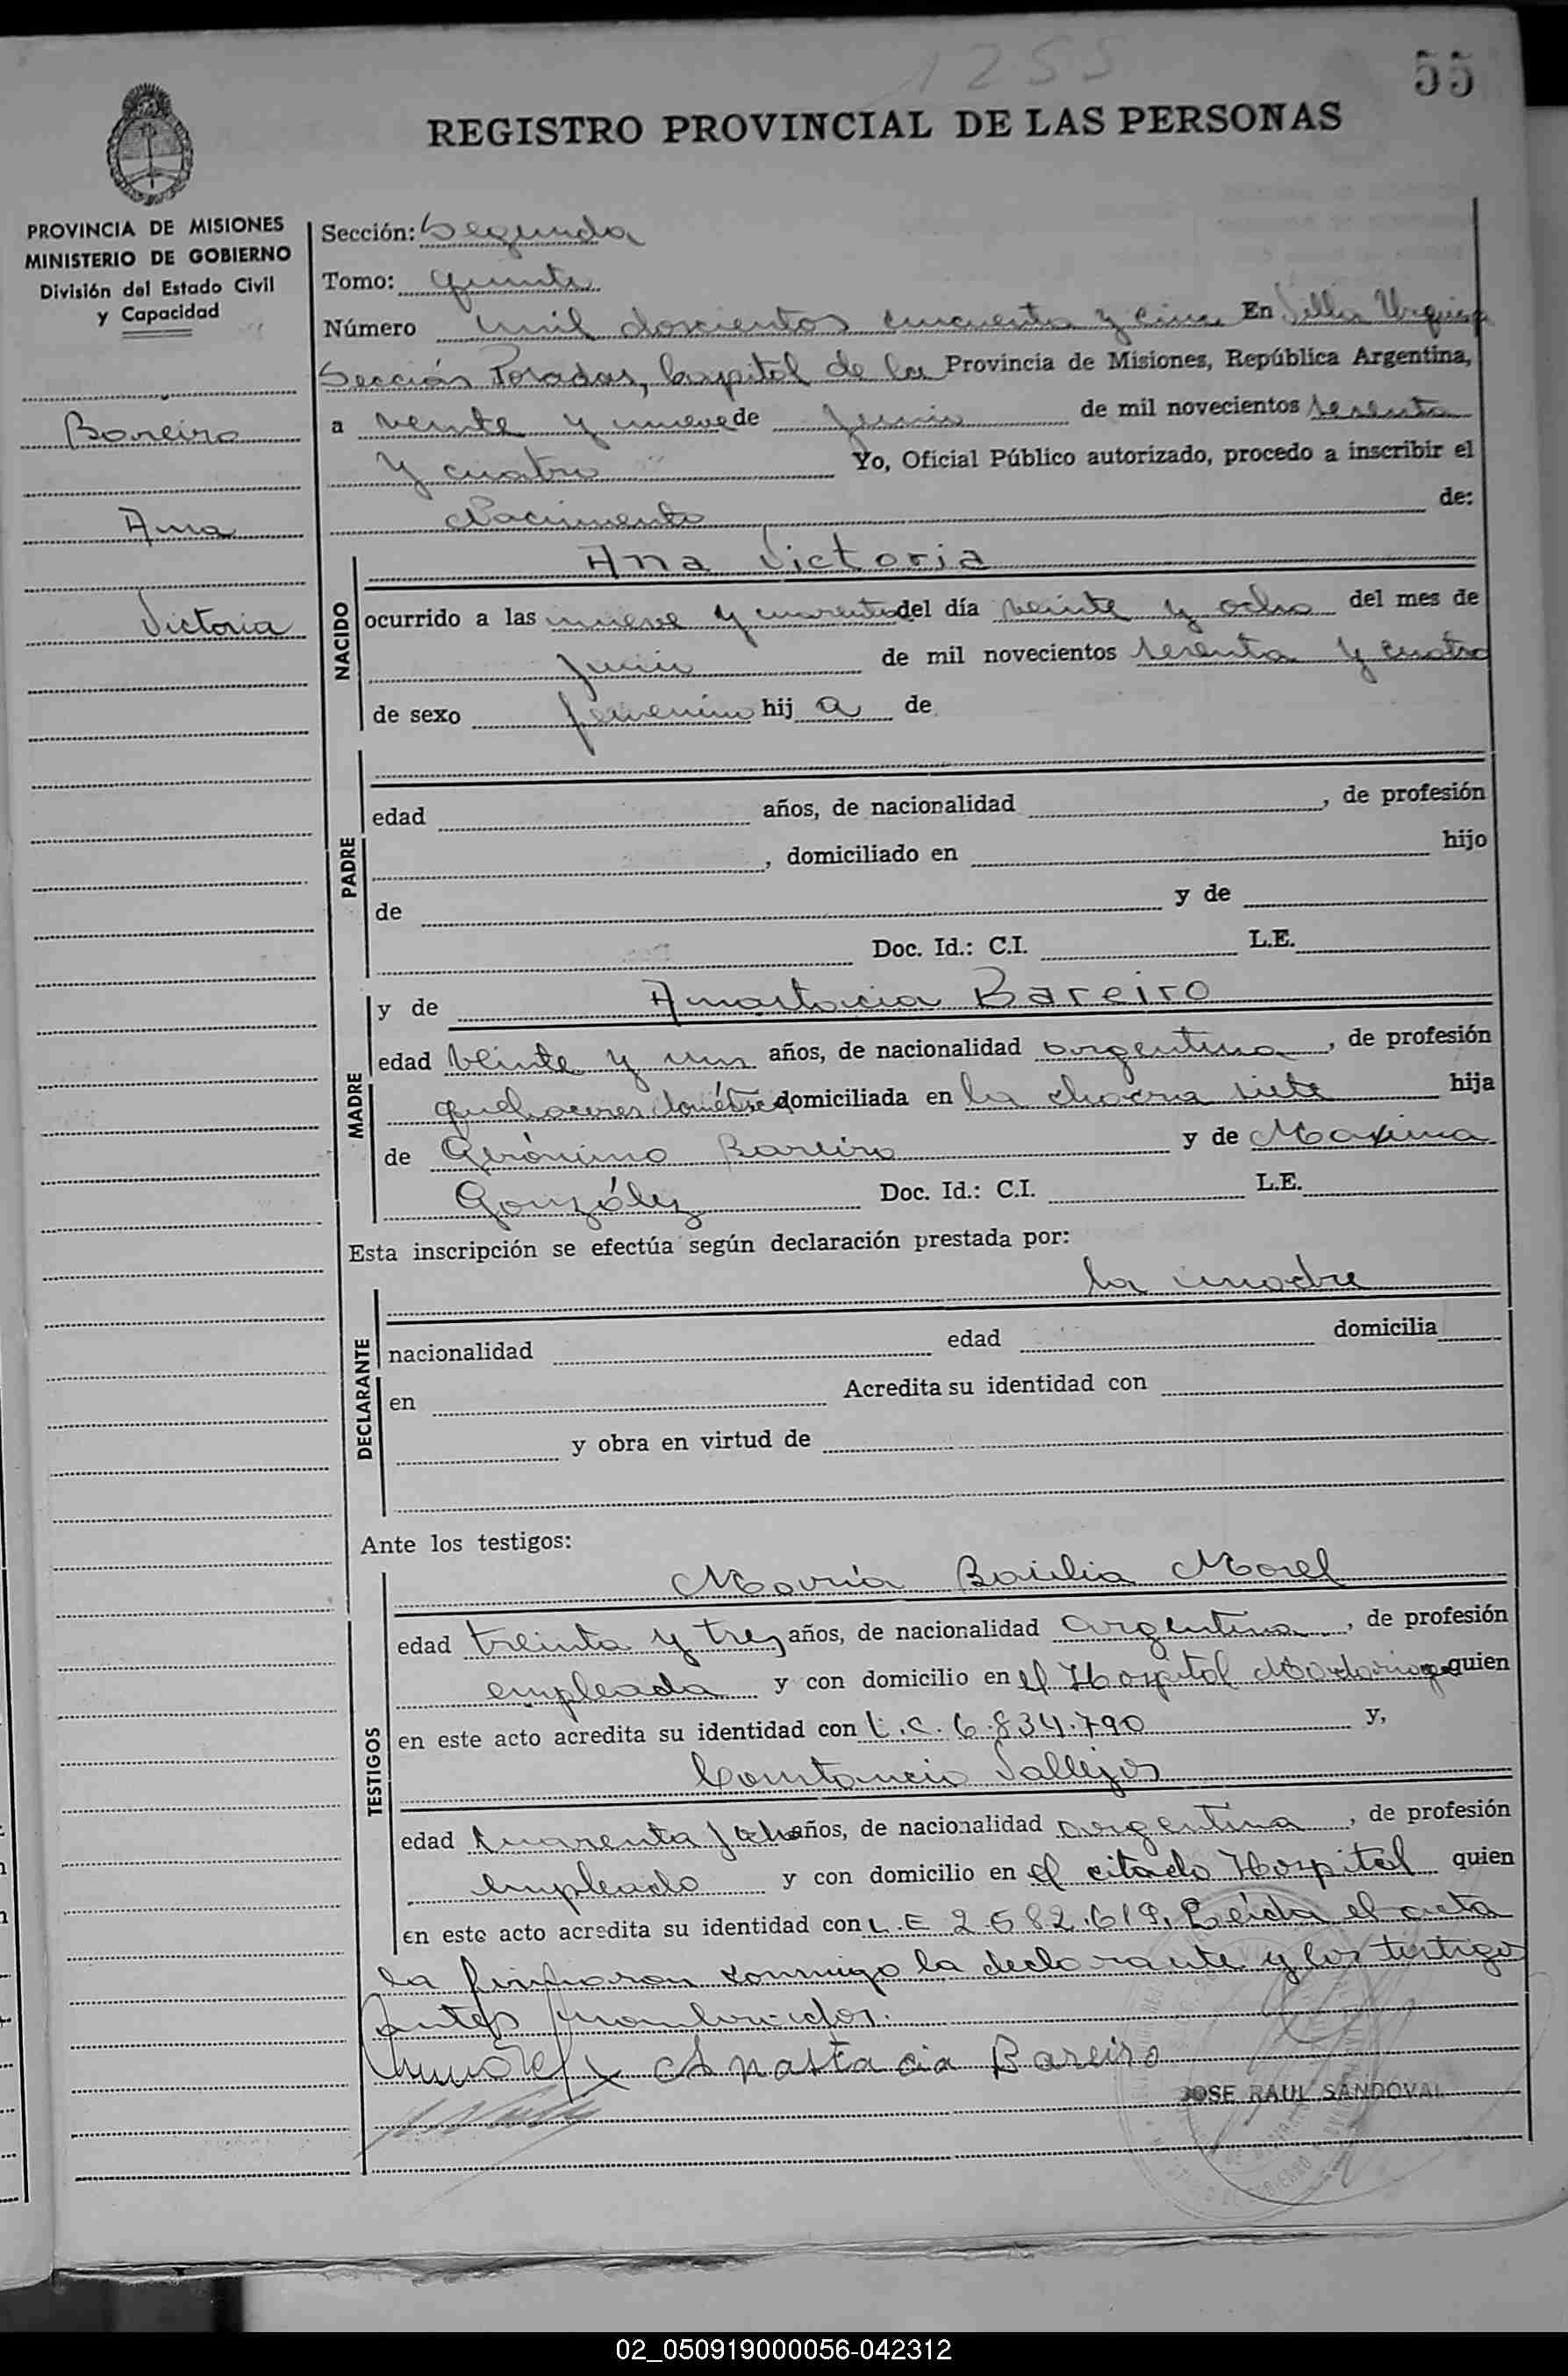 1255
55
REGISTRO PROVINCIAL DE LAS PERSONAS
PROVINCIA DE MISIONES
MINISTERIO DE GOBIERNO
División del Estado Civil
y Capacidad
Bareiro
Ana
Victoria
Sección: Segunda
Tomo: Quinto
Número mil doscientos cincuenta y cinco En Villa Urquiza
Sección Posadas, Capital de la Provincia de Misiones, República Argentina,
a veinte y nueve de Junio de mil novecientos sesenta
y cuatro Yo, Oficial Público autorizado, procedo a inscribir el
Nacimiento de:
NACIDO
Ana Victoria
ocurrido a las nueve y cuarenta del día veinte y ocho del mes de
Junio de mil novecientos sesenta y cuatro
de sexo femenino hij a de
PADRE
edad años, de nacionalidad , de profesión
, domiciliado en hijo
de y de
Doc. Id.: C.I. L.E.
MADRE
y de Anastacia Bareiro
edad veinte y un años, de nacionalidad argentina, de profesión
quehaceres domésticos domiciliada en la chacra siete hija
de Gerónimo Bareiro y de Maxima
González Doc. Id.: C.I. L.E.
Esta inscripción se efectúa según declaración prestada por:
la madre
DECLARANTE
nacionalidad edad domicilia
en Acredita su identidad con
y obra en virtud de
Ante los testigos:
TESTIGOS
María Basilia Morel
edad treinta y tres años, de nacionalidad argentina, de profesión
empleada y con domicilio en el Hospital Madariaga quien
en este acto acredita su identidad con L.C. 6.834.790 y,
Constancio Vallejos
edad cuarenta y ocho años, de nacionalidad argentina, de profesión
empleado y con domicilio en el citado Hospital quien
en este acto acredita su identidad con L.E 2.582.619. Leída el acta
la firmaron conmigo la declarante y los testigos
antes nombrados.
Anastacia Bareiro
JOSE RAUL SANDOVAL
02_050919000056-042312